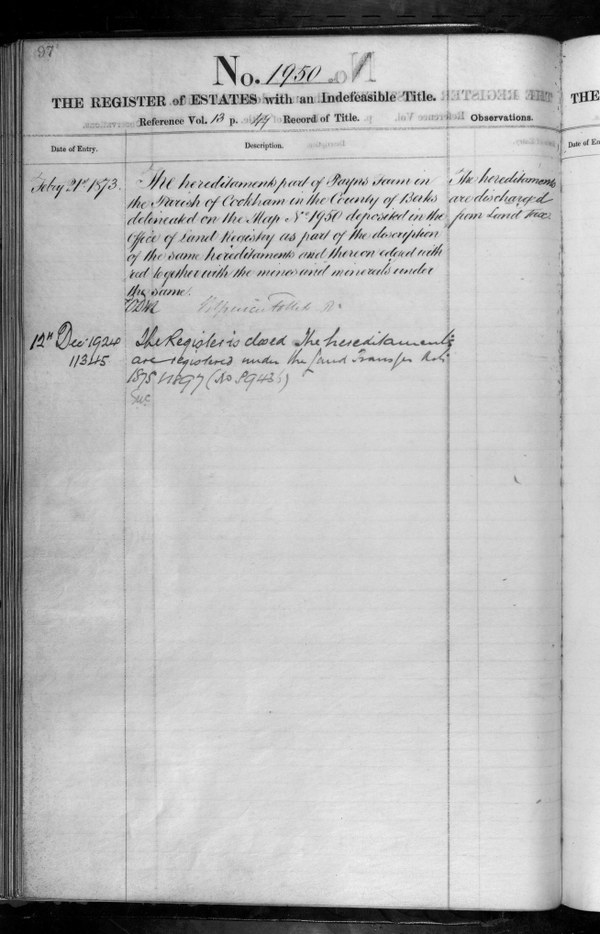 97
No. 1950
THE REGISTER of ESTATES with an Indefeasible Title.
Reference Vol. 13 p. 47 Record of Title.
Observations.
Date of Entry.
Description.
Feby 21st 1873.
The hereditaments part of Payns Farm in
the Parish of Cookham in the County of Berks
delineated on the Map No 1950 deposited in the
Office of Land Registry as part of the description
of the same hereditaments and thereon edged with
red together with the mines and minerals under
the same.
The hereditaments
are discharged
from Land Tax
Follett
12th Dec 1924
11345
The Register is closed The hereditaments
are registered under the Land Transfer Acts
1875 & 1897 (No
THE
Date of En